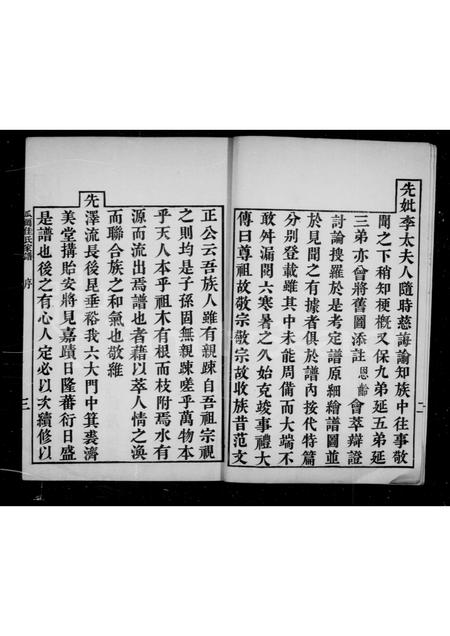 先妣李太夫人隨時慈誨諭知族中往事敬
聞之下稍知梗概又保九弟延五弟延
三弟亦曾將舊圖添註恩齡會萃辯證
討論搜羅於是考定譜原細繪譜圖並
於見聞之有據者俱於譜內按代特篇
分別登載雖其中未能周備而大端不
敢舛漏閱六寒暑之久始克竣事禮大
傳曰尊祖故敬宗敬宗故收族昔范文
二
正公云吾族人雖有親疎自吾祖宗視
之則均是子孫固無親疎嗟乎萬物本
乎天人本乎祖木有根而枝附焉水有
源而流出焉譜也者藉以萃人情之渙
而聯合族之和氣也敬維
先澤流長後昆垂裕我六大門中箕裘濟
美堂搆貽安將見嘉蹟日隆蕃衍日盛
是譜也後之有心人定必以次續修以
瓜爾佳氏家譜 序 三